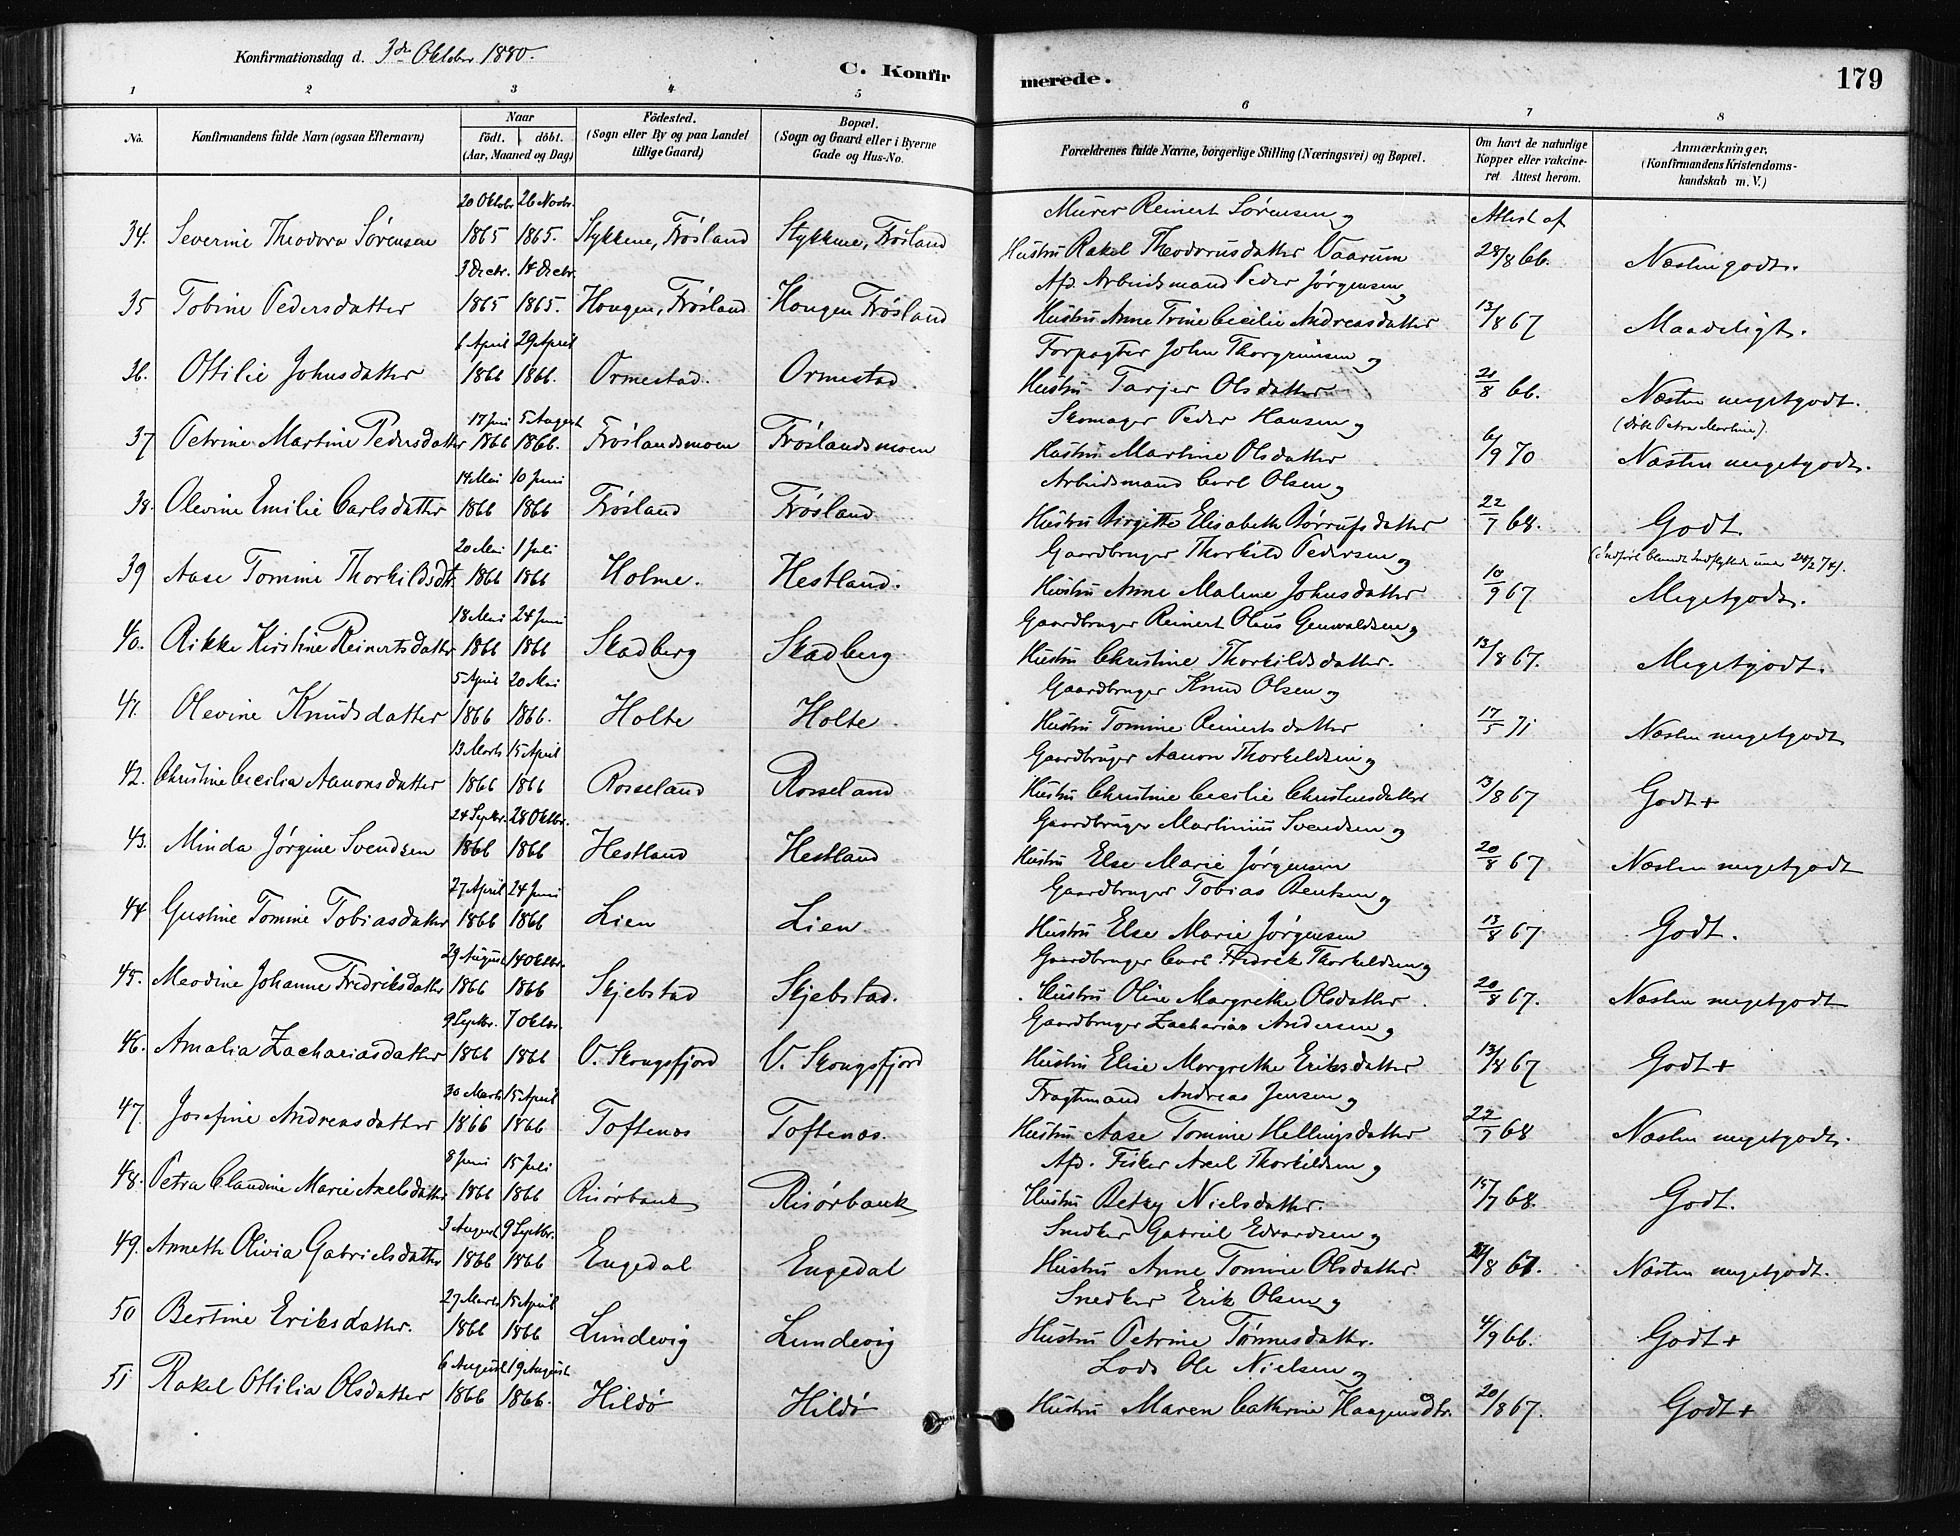 Konfirmationsdag d. 3die Oktober 1880.
C. Konfirmerede.
179
1 2 3 4 5 6 7 8
No.
Konfirmandens fulde Navn (ogsaa Efternavn)
Naar
födt. döbt.
(Aar, Maaned og Dag)
Födested.
(Sogn eller By og paa Landet
tillige Gaard)
Bopæl.
(Sogn og Gaard eller i Byerne
Gade og Hus-No.
Forældrenes fulde Navne, borgerlige Stilling (Næringsvei) og Bopæl.
Om havt de naturlige
Kopper eller vakcine-
ret Attest herom.
Anmærkninger.
(Konfirmandens Kristendoms-
kundskab m. V.)
20 Oktobr 26 Novbr. Murer Reinert Sørensen og Attest af
34. Severine Theodora Sørensen 1865 1865. Stykkene, Frösland Stykkene, Frösland Hustru Rakel Theodorusdatter Vaarum 28/8 66. Næsten godt.
3 Decbr. 14 Decbr. Afd. Arbeidsmand Peder Jörgensen og
35 Tobine Pedersdatter 1865 1865. Hougen, Frösland Hougen Frösland Hustru Anne Trine Cecilie Andreasdatter 13/8 67 Maadeligt.
6 April 29 April Forpagter John Thorgrimsen og
36. Ottilie Johnsdatter 1866 1866. Ormestad. Ormestad Hustru Tarjer Olsdatter 21/8 66. Næsten megetgodt.
17 Juni 5 August Skomager Peder Hansen og (döbt Petra Martine).
37 Petrine Martine Pedersdatter 1866 1866. Fröslandsmoen Fröslandsmoen Hustru Martine Olsdatter 6/9 70 Næsten megetgodt.
14 Mai 10 Juni Arbeidsmand Carl Olsen og
38. Olevine Emilie Carlsdatter 1866 1866 Frösland Frösland Hustru Birgitte Elisabeth Börrufsdatter 22/7 68. Godt.
20 Mai 1 Juli Gaardbruger Thorkild Pedersen og (Indfört blandt Indflyttede under 24/2 74).
39 Aase Tomine Thorkildsdtr. 1866 1866 Holme. Hestland. Hustru Anne Malene Johnsdatter 10/9 67 Megetgodt.
18 Mai 24 Juni Gaardbruger Reinert Olaus Genvaldsen og
40. Rikke Kirstine Reinertsdatter 1866 1866 Skadberg Skadberg Hustru Christine Thorkildsdatter. 13/8 67. Megetgodt.
5 April 20 Mai Gaardbruger Knud Olsen og
41. Olevine Knudsdatter 1866 1866. Holte Holte Hustru Tomine Reinertsdatter 17/5 71 Næsten megetgodt
13 Marts 15 April Gaardbruger Aanon Thorkeldsen og
42. Christine Cecilia Aanonsdatter 1866 1866 Rosseland Rosseland Hustru Christine Cecilie Christensdatter 13/8 67 Godt+
24 Septbr. 28 Oktbr. Gaardbruger Martinius Svendsen og
43. Minda Jörgine Svendsen 1866 1866 Hestland Hestland Hustru Else Marie Jörgensen 20/8 67 Næsten megetgodt
27 April 24 Juni Gaardbruger Tobias Bentsen og
44 Gustine Tomine Tobiasdatter 1866 1866 Lien Lien Hustru Else Marie Jörgensen 13/8 67 Godt.
29 August 14 Oktbr. Gaardbruger Carl Fredrik Thorkeldsen og
45. Meodine Johanne Fredriksdatter 1866 1866 Skjebstad Skjebstad. Hustru Oline Margrethe Olsdatter 20/8 67. Næsten megetgodt
9 Septbr. 7 Oktbr. Gaardbruger Zacharias Andersen og
46. Amalia Zachariasdatter 1866 1866 V. Skougsfjord V. Skougsfjord Hustru Elise Margrethe Eriksdatter 13/8 67 Godt+
30 Marts 15 April Fragtmand Andreas Jensen og
47. Josefine Andreasdatter 1866 1866 Toftenæs Toftenæs. Hustru Aase Tomine Hellingsdatter 22/7 68 Næsten megetgodt.
8 Juni 15 Juli Afd. Fisker Axel Thorkildsen og
48. Petra Claudine Marie Axelsdatter 1866 1866 Risörbank Risörbank Hustru Betzy Nielsdatter. 15/7 68. Godt.
3 August 9 Septbr. Snedker Gabriel Edvardsen og
49. Anneth Olivia Gabrielsdatter 1866 1866 Engedal Engedal Hustru Anne Tomine Olsdatter. /8 67. Næsten megetgodt.
27 Marts 15 April Snedker Erik Olsen og
50 Bertine Eriksdatter. 1866 1866 Lundevig Lundevig Hustru Petrine Tönnesdatter. 4/9 66. Godt+
6 August 19 August Lods Ole Nielsen og
51 Rakel Ottilia Olsdatter 1866 1866. Hildö Hildö Hustru Maren Cathrine Haagensdtr. 20/8 67. Godt+